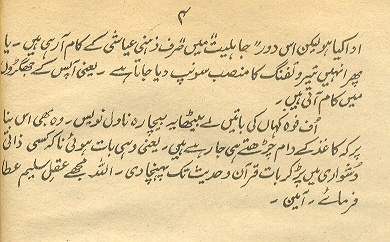 ۴
ادا کیا ہو لیکن اس دور "جاہلیت" میں صرف ذہنی عیاشی کے کام آ رہی ہیں ۔ یا
پھر انہیں تیر و تفنگ کا منصب سونپ دیا جاتا ہے ۔ یعنی آپس کے جھگڑوں
میں کام آتی ہیں ۔
اُف وہ کہاں کی باتیں لے بیٹھا یہ بیچارہ ناول نویس ۔ وہ بھی اس بنا
پر کہ کاغذ کے دام چڑھتے ہی جا رہے ہیں ۔ یعنی وہی بات ہوئی نا کہ کسی ذاتی
دشواری میں پڑ کر بات قرآن و حدیث تک پہنچا دی ۔ اللہ مجھے عقلِ سلیم عطا
فرمائے ۔ آمین ۔